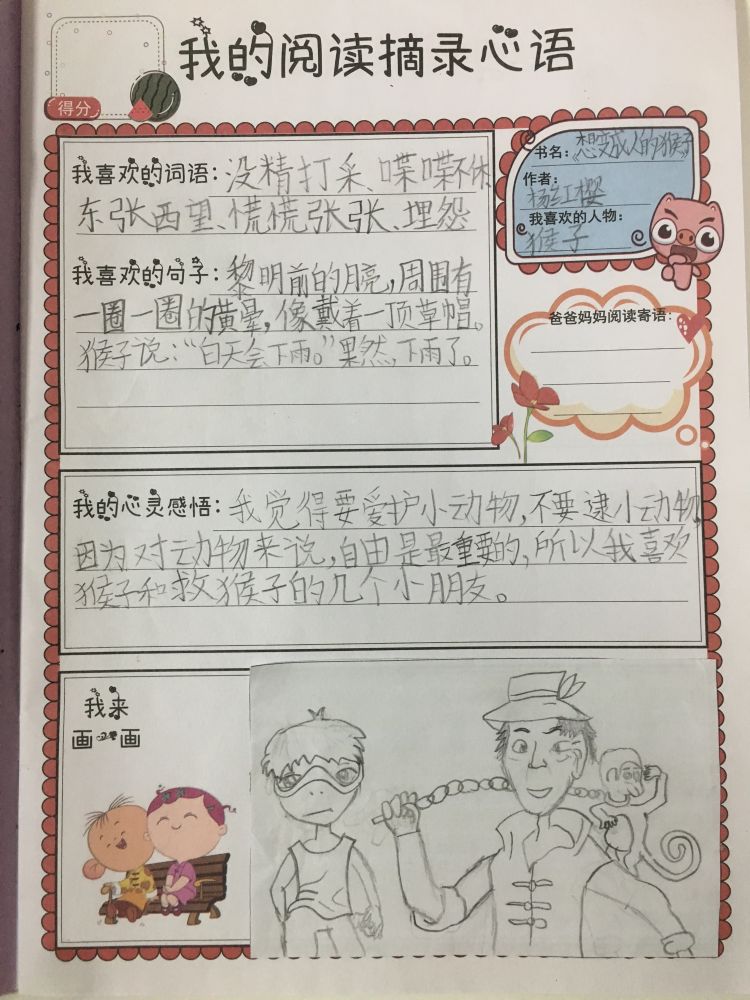 我的阅读摘录心语
得分
我喜欢的词语：没精打采、喋喋不休
东张西望、慌慌张张、埋怨
我喜欢的句子：黎明前的月亮，周围有
一圈一圈的黄晕，像戴着一顶草帽。
猴子说：“白天会下雨。”果然，下雨了。
书名：《想变成人的猴子》
作者：
杨红樱
我喜欢的人物：
猴子
爸爸妈妈阅读寄语：
我的心灵感悟：我觉得要爱护小动物，不要逮小动物，
因为对动物来说，自由是最重要的，所以我喜欢
猴子和救猴子的几个小朋友。
我来
画一画